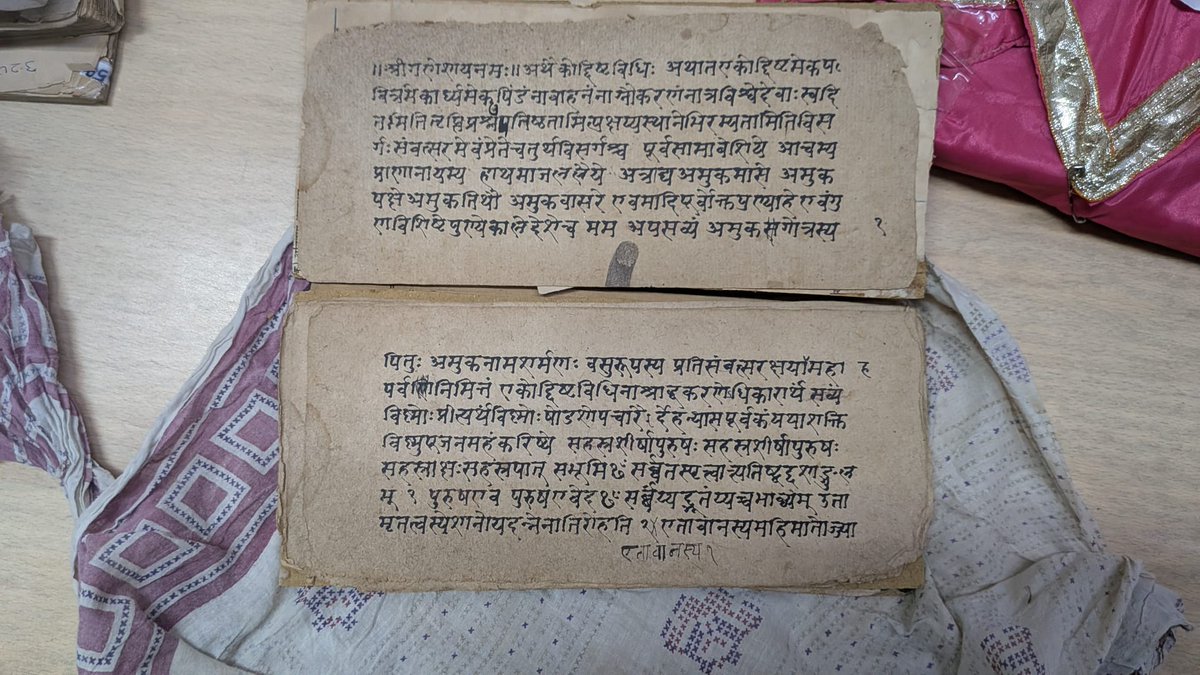 ॥श्रीगणेशायनमः॥ अथैकोद्दिष्टविधिः अथातएकोद्दिष्टमेकप
वित्रमेकार्घ्यमेकपिंडंनावाहनंनाग्नौकरणंनात्रविश्वेदेवाःस्वदि
तमितितृप्तिप्रश्नेउपतिष्ठतामित्यक्षय्यस्थानेभिरम्यतामितिविस
र्गःसंवत्सरमेवंप्रेतेचतुर्थविसर्गश्च पूर्वसामावेशिये आचम्य
प्राणानायम्य हाथमाजललेये अत्राद्य अमुकमासे अमुक
पक्षे अमुकतिथौ अमुकवासरे एवमादिपूर्वोक्तपुण्याहे एवंगु
णविशिष्टेपुण्येकालेदेशेच मम अपसव्यं अमुकसगोत्रस्य १
पितुः अमुकनामशर्मणः वसुरूपस्य प्रतिसंवत्सर महा
पर्व निमित्तं एकोद्दिष्टविधिनाश्राद्धकरणेधिकारार्थं सव्यं
विष्णोः प्रीत्यर्थंविष्णोः षोडशोपचारैः र्देहन्यासपूर्वकंयथाशक्ति
विष्णुपूजनमहंकरिष्ये सहस्त्रशीर्षापुरुषः सहस्त्रशीर्षापुरुषः
सहस्त्राक्षःसहस्त्रपात् सभूमिᳪ सर्व्वतस्पृत्त्वात्यतिष्ठद्दशाङ्गुल
म् १ पुरुषएवं पुरुषएवेदᳪ सर्व्वंय्यद्भूतंय्यच्चभाव्यम् उता
मृतत्वस्येशानोयदन्नेनातिरोहति २ एतावानस्यमहिमातोज्या
एतावानस्य